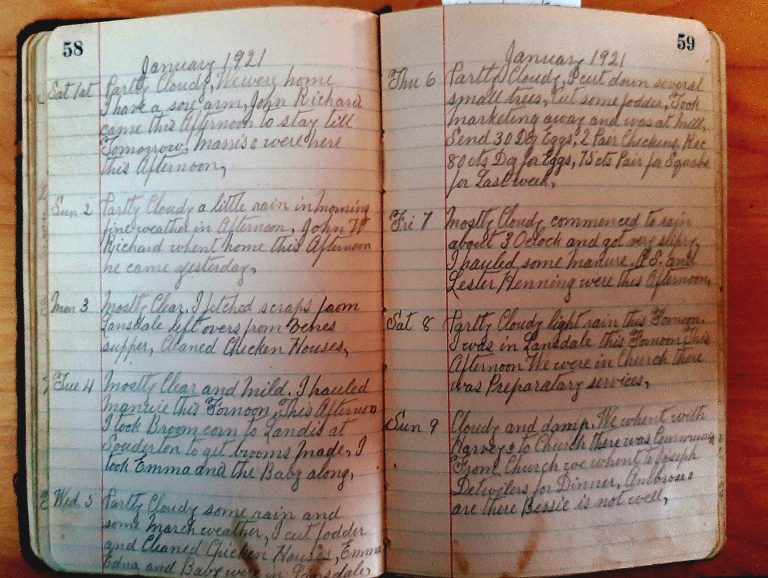 58
January 1921
Sat 1st Partly Cloudy, We were home
I have a sore arm, John Richard
came this Afternoon to stay till
Tomorrow, Marris's were here
this Afternoon,
Sun 2 Partly Cloudy a little rain in morning
fine weather in Afternoon, John
Richard whent home this Afternoon
he came yesterday,
Mon 3 Mostly Clear, I fetched scraps from
Lansdale left overs from
supper, Cleaned Chicken Houses,
Tue 4 Mostly Clear and Mild, I hauled
Manure this Fornoon, This Afternoon
I took Broom corn to Landis at
Souderton to get brooms made, I
took Emma and the Baby along,
Wed 5 Partly Cloudy some rain and
some March weather, I cut fodder
and Cleaned Chicken Houses, Emma
Edna and Baby were in Lansdale,
59
January 1921
Thu 6 Partly Cloudy, I cut down several
small trees, Cut some fodder, Took
marketing away and was at Mill,
Send 30 Dz Eggs, 2 Pair Chickens, Rec
80 cts Dz for Eggs, 75 cts Pair for Squabs
for Last week,
Fri 7 Mostly Cloudy commenced to rain
about 3 Oclock and got very slipry,
I hauled some manure, and
Lester Henning were this Afternoon,
Sat 8 Partly Cloudy light rain this Fornoon,
I was in Lansdale this Fornoon This
Afternoon We were in Church there
was Preparatary services,
Sun 9 Cloudy and damp, We whent with
Harvey's to Church there was Communion
From Church we whent to Joseph
Detwilers for Dinner, Ambrose's
are there Bessie is not well,